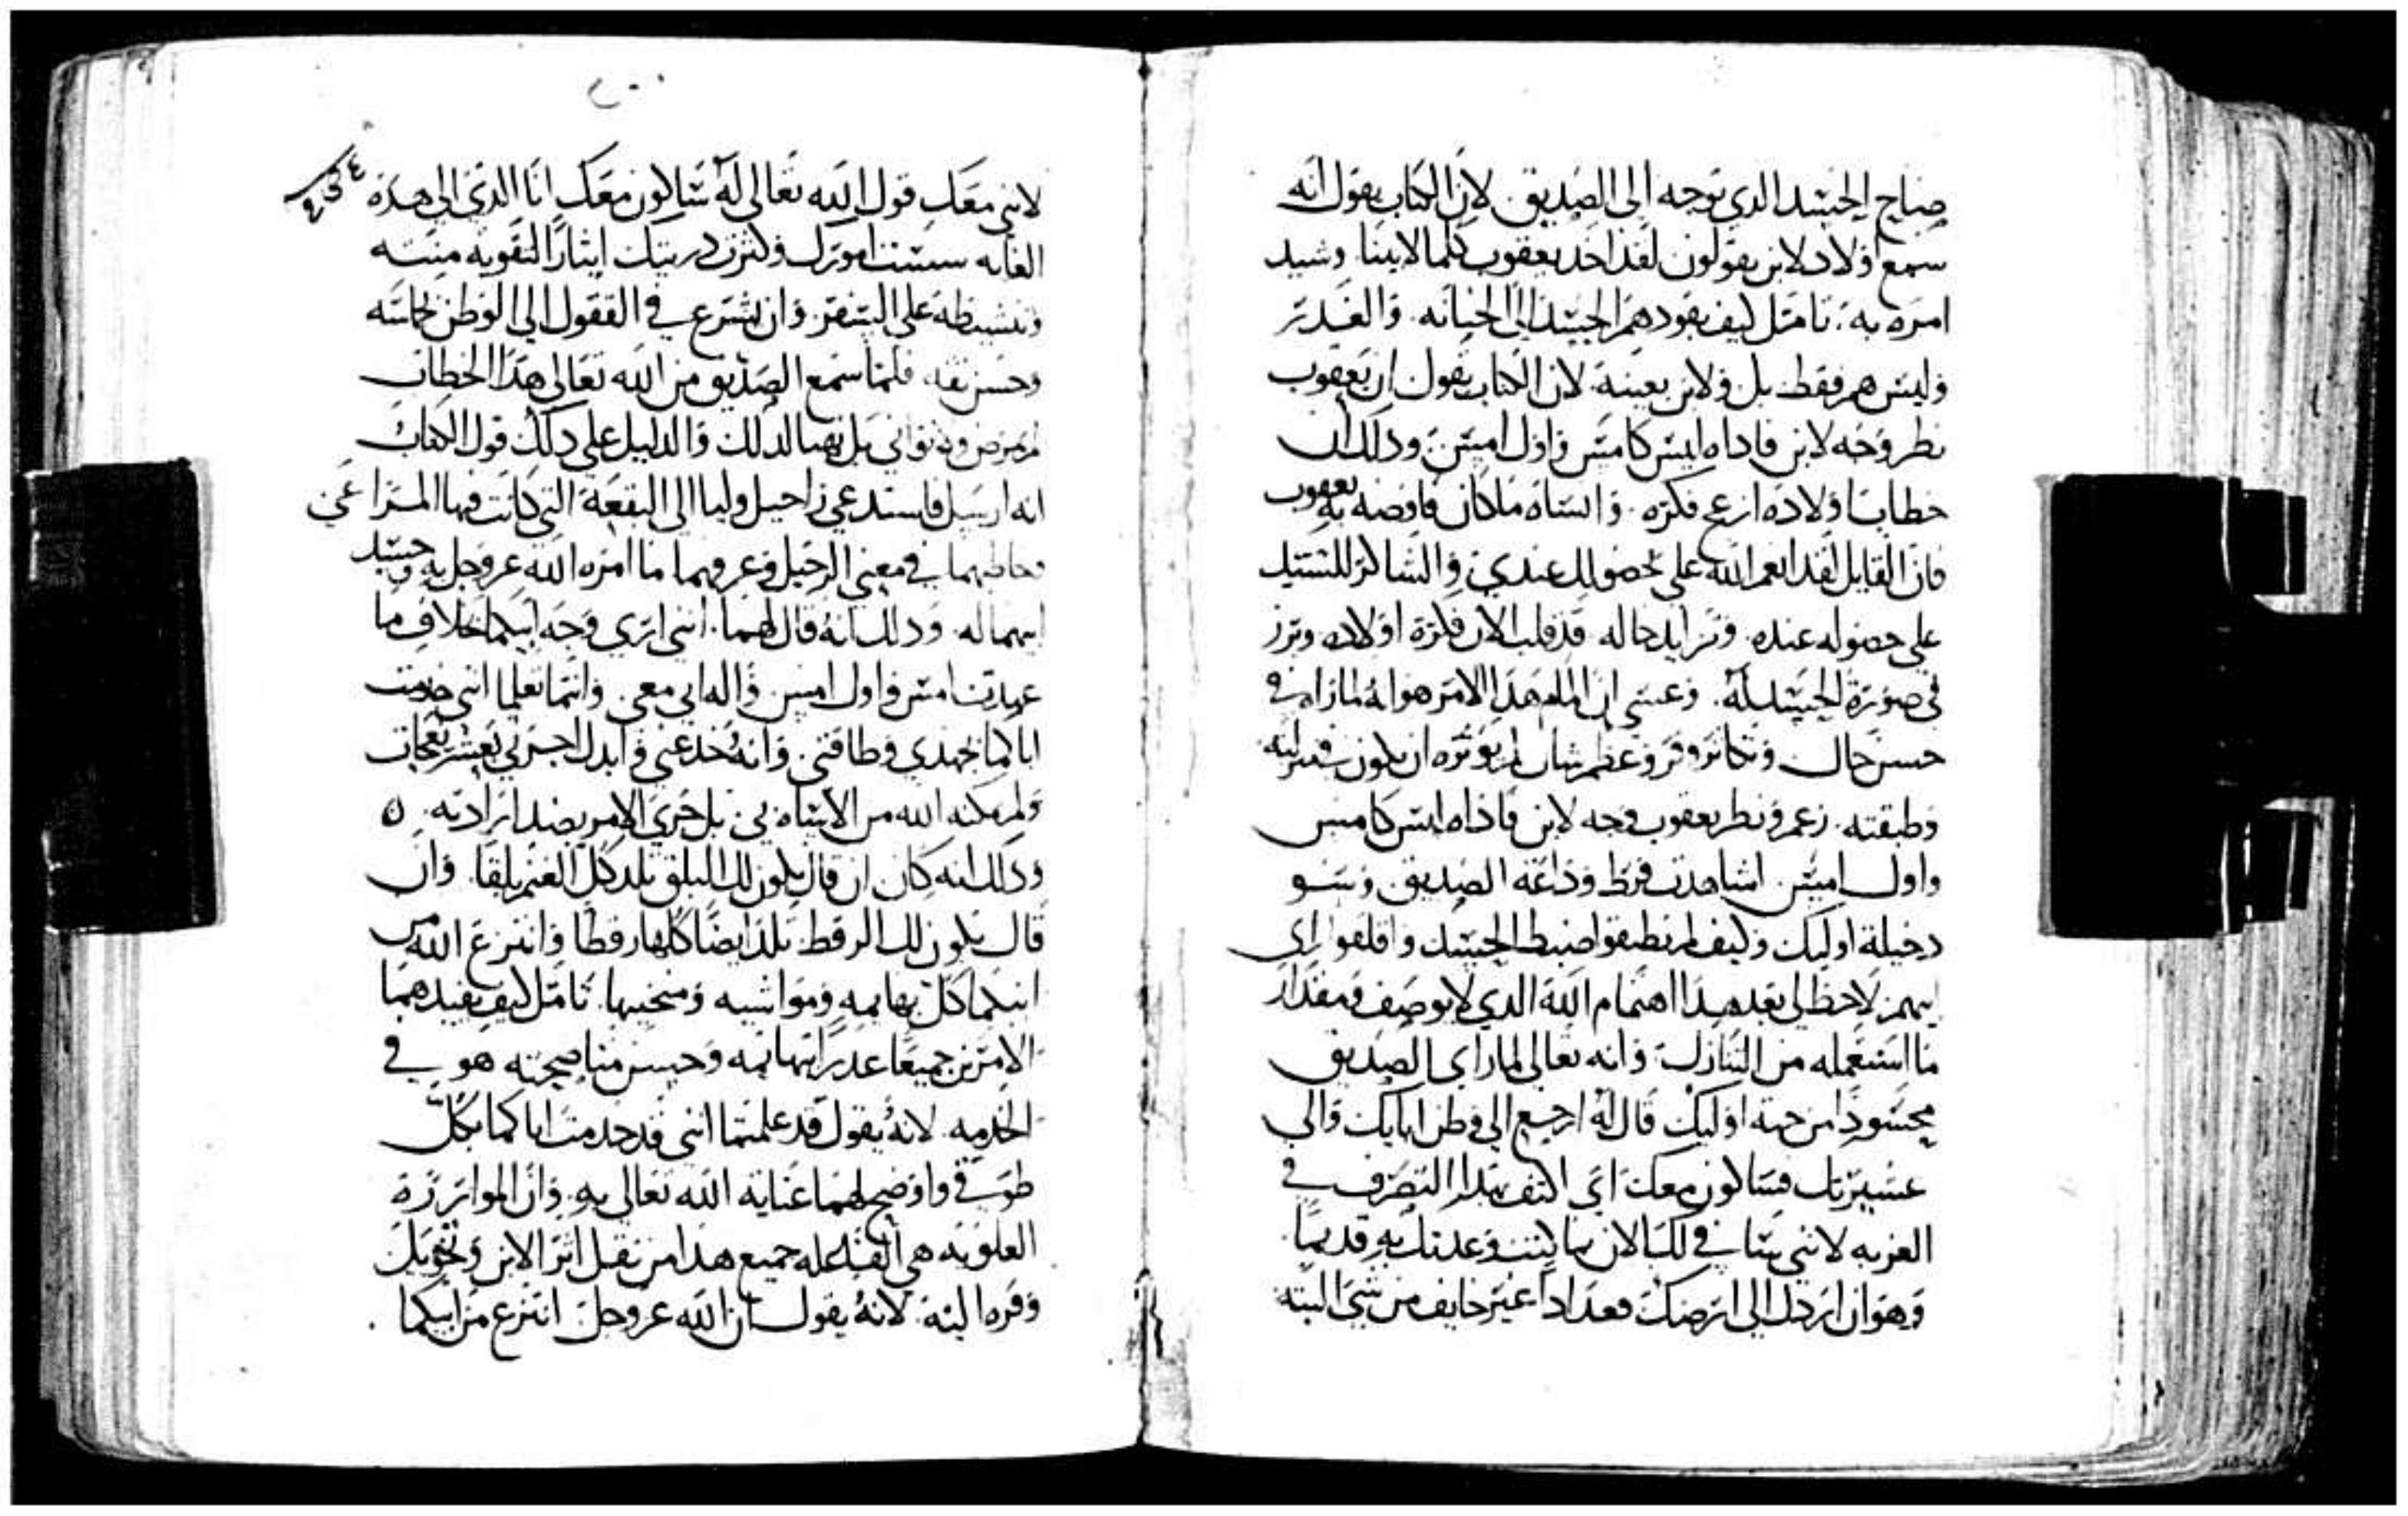 صباح الحسد الدي توجه الى الصديق. لان الكتاب يقول انه
سمع اولاد لابن يقولون لقد اخد يعقوب كلما لابينا. وشيد
امره به. تامل كيف يقودهم الحسد الى الخيانه. والغدر
وليس هم فقط بل ولابن بعينه. لان الكتاب يقول ان يعقوب
نطر وجه لابن فاداه ليس كامس واول امس. ودلك ان
خطاب اولاده ازعج فكره. وانساه ما كان فاوضه به يعقوب
فان القايل لقد انعم الله علي بحصولك عندي. والشاكر للسيد
على حصوله عنده. وتزايد حاله. قد قلب الان فكرة اولاده وبرز
في صورة الحسد له. وعسى ان الملم هدا الامر هو انه لما راه في
حسن حال وتكاثر وفر وعظم شان لم يوثره ان يكون في منزلته
وطبقته. زعم ونطر يعقوب وجه لابن فاداه ليس كامس
واول امس. اشاهدت فرط وداعة الصديق وسو
دخيلة اوليك وكيف لم يطيقوا ضبط الحسد واقلقوا راي
ابيهم. لاحظ لي بعد هدا اهتمام الله الدي لا يوصف ومقدار
ما استعمله من التنازل. وانه تعالى لما راى الصديق
محسودا من جهة اوليك قال له ارجع الى وطن ابايك والى
عشيرتك فساكون معك اي اكتف بهدا التصرف في
الغربه لانني سافي لك الان بما كنت وعدتك به قديما.
وهو ان اردك الى ارضك فعد ادا غير خايف من شي البته
لانني معك قول الله تعالى له ساكون معك انا الدي الى هده
الغايه سست امورك وكثرت دريتك ايثارا لتقوية منته
وتنشيطه على السفر. وان يشرع في القفول الى الوطن بحماسه
وحسن ثقه. فلما سمع الصديق من الله تعالى هدا الخطاب
لم يرض ويتوانى بل تهيا لدلك والدليل على دلك قول الكتاب
انه ارسل فاستدعى راحيل وليا الى البقعة التي كانت فيها المراعي
وخاطبهما في معنى الرحيل وعرفهما ما امره الله عز وجل به وحسد
ابيهما له. ودلك انه قال لهما. انني ارى وجه ابيكما خلاف ما
عهدت امس واول امس. واله ابي معي. وانتما تعلما انني خدمت
اباكما بجهدي وطاقتي. وانه خدعني وابدل اجرتي بعشر نعجات
ولم يمكنه الله من الاساه بي. بل جرى الامر بضد ارادته. ه
ودلك انه كان ان قال يكون لك البلق تلد كل الغنم بلقا. وان
قال يكون لك الرقط تلد ايضا كلها رقطا وانتزع الله من
ابيكما كل بهايمه ومواشيه ومنحنيها. تامل كيف يفيدهما
الامرين جميعا غدر ابيهما به وحسن مناصحته هو في
الخدمه. لانه يقول قد علمتما انني قد خدمت اباكما بكل
طوقي واوضح لهما عناية الله تعالى به. وان الموازرة
العلويه هي الفاعله جميع هدا من نقل اثر الابن وتحويل
وفره اليه. لانه يقول ان الله عز وجل انتزع من ابيكما